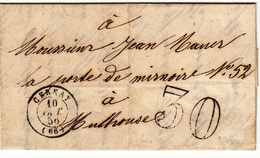 à
Monsieur Jean Bauer
la porte de mirnoire No. 52
à
Mulhouse
CERNAY
10
56
(66)
30